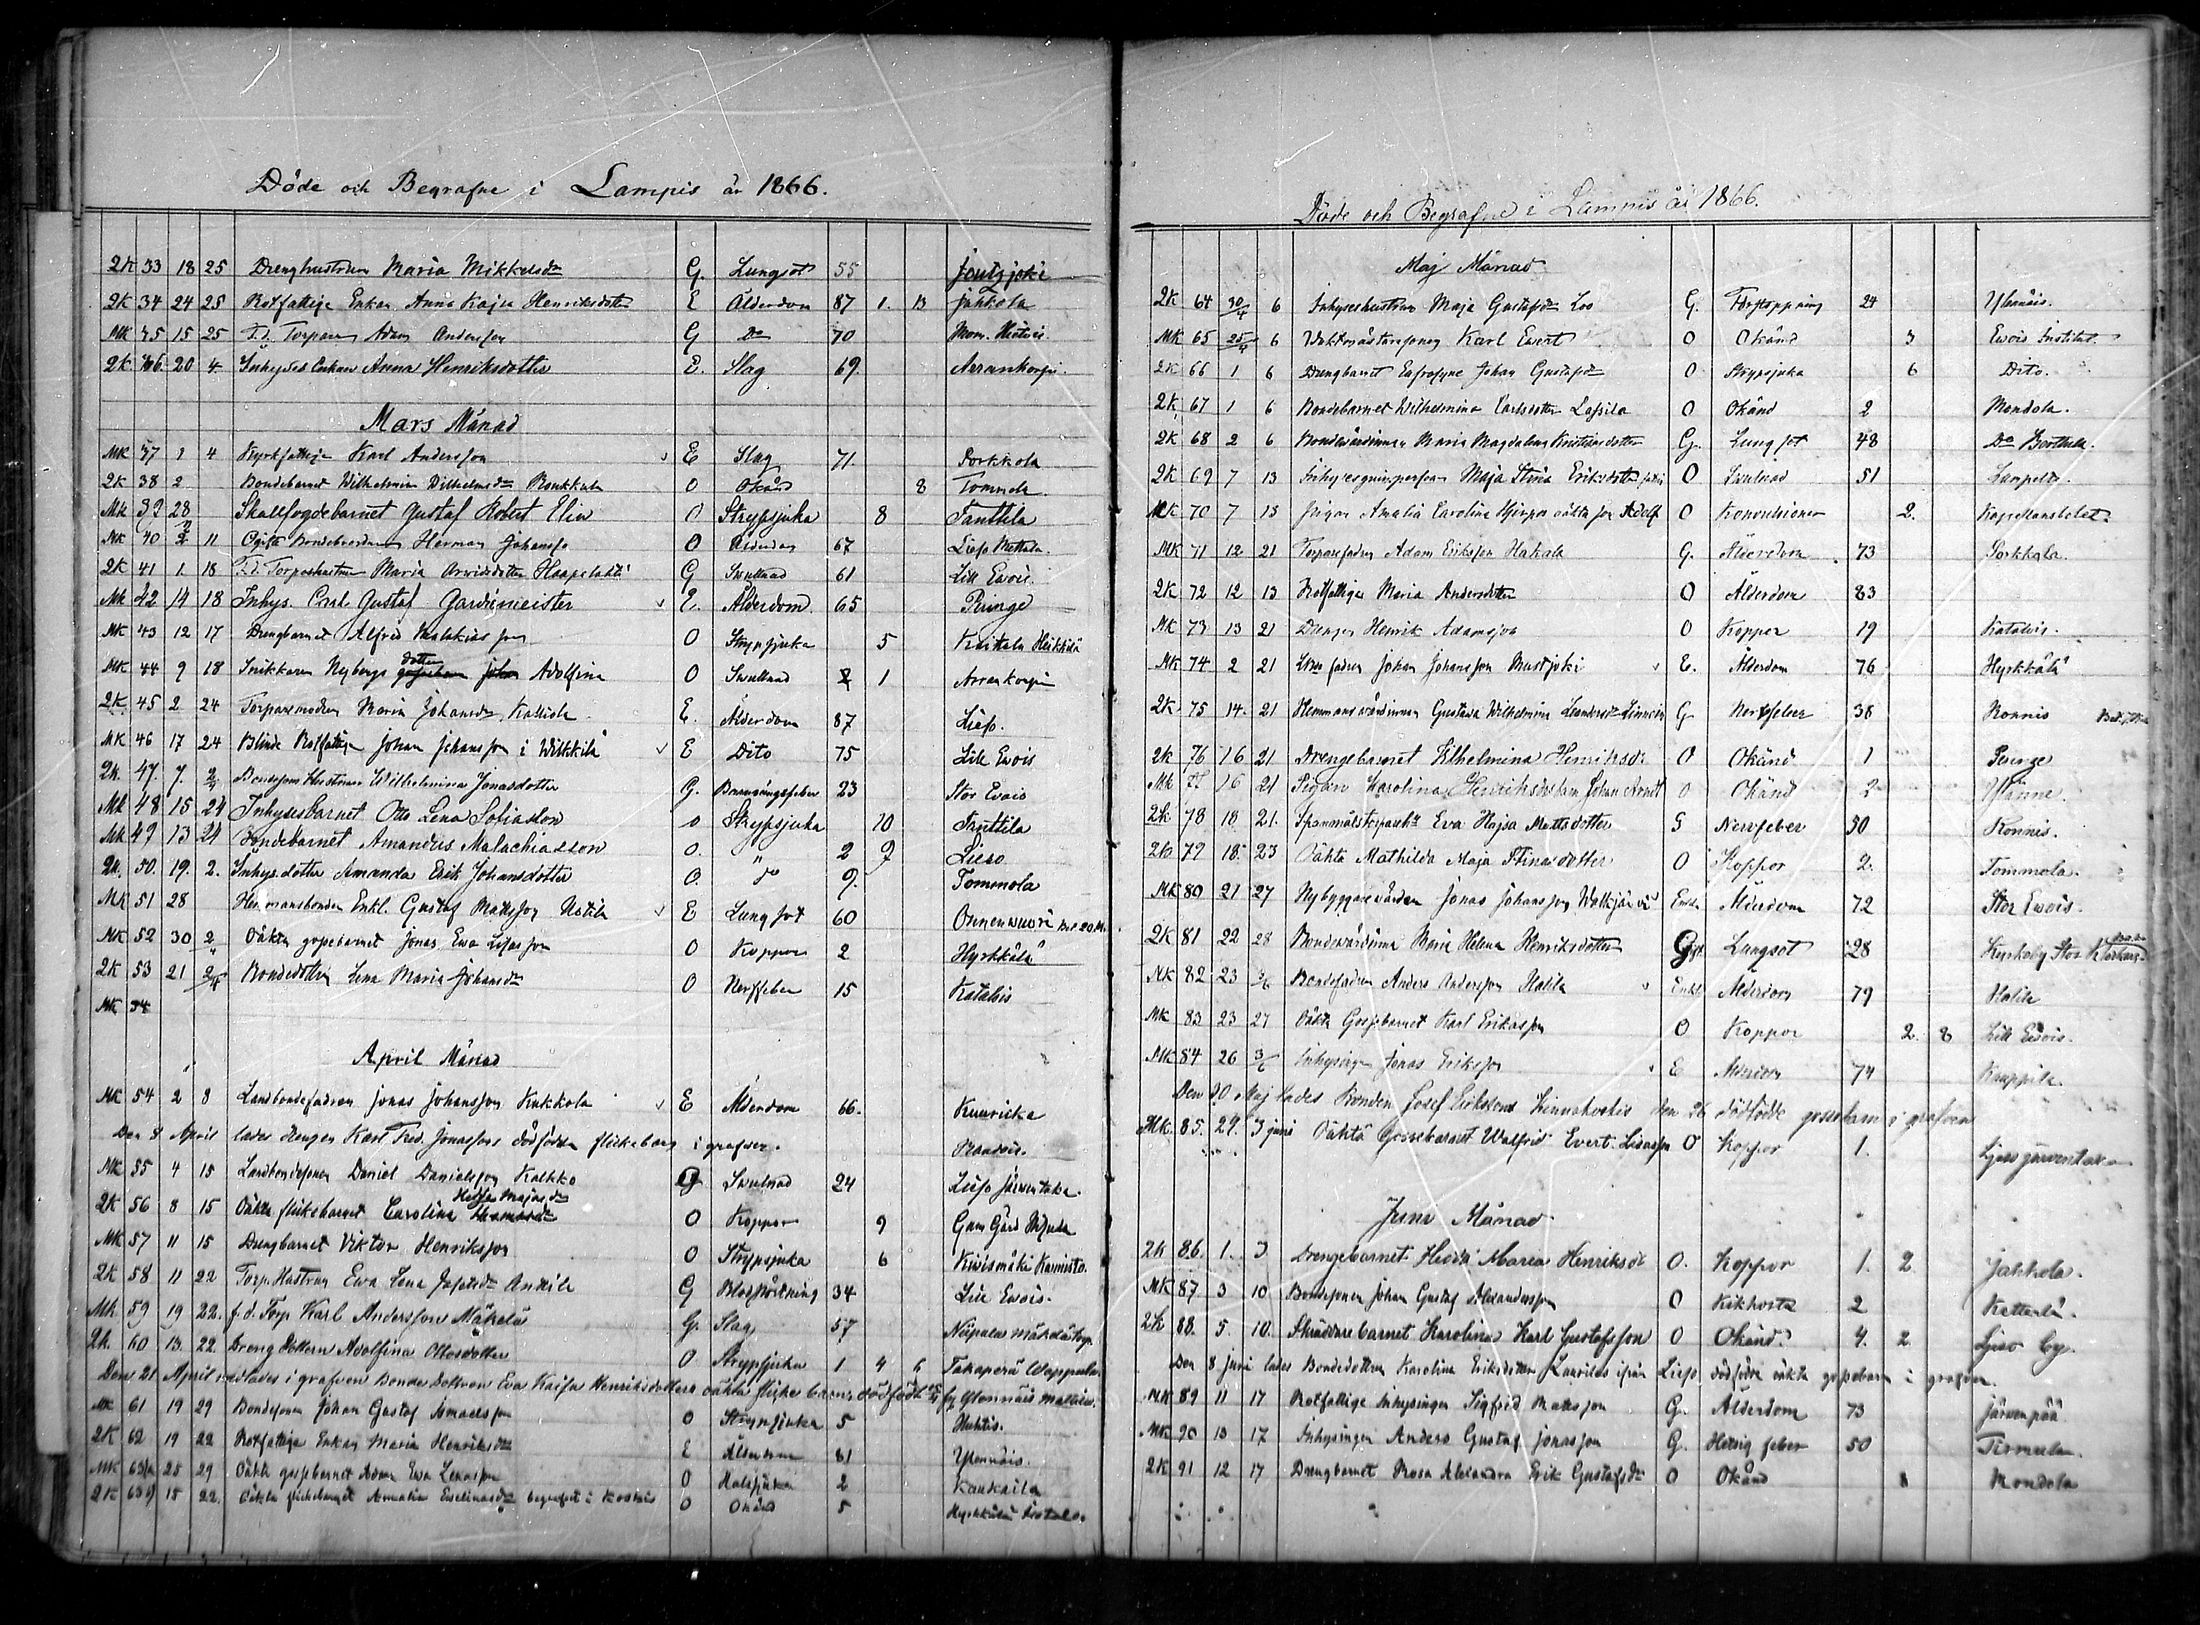 Döde och Begrafne i Lampis år 1866.
2K 33 18 25 Drenghustrun Maria Mikkelsdr G. Lungsot 55 Joutsjoki
2K 34 24 25 Rotfattige Enkan Anna Kajsa Henriksdotter E Ålderdom 87 1. 13 Jahkola
MK 35 15 25 F.d. Torparen Adam Andersson G Do 70
2K 36. 20 4 Inhyses Enkan Anna Henriksdotter E. Slag 69. Arrankorpi.
Mars Månad
MK 37 1 4 Kyrkfattige Karl Andersson E Slag 71. Porkkola
2K 38 2 Bondebarnet Wilhelmina Wilhelmsdr O Okänd 8 Tommola
MK 39 28 Skallfogdebarnet Gustaf Robert Elin O Strypsjuka 8 Tanttila
MK 40 2/2 11 Ogifte Bondebrodren Herman Johansson O Ålderdom 67 Lieso
2K 41 1. 18 F.d. Torparehustrun Maria Arvidsdotter Haapalahti G Swullnad 61 Lill Ewois
MK 42 14 18 Inhys. Carl Gustaf Gardemeister E. Ålderdom 65 Puringe
MK 43 12 17 Drengbarnet Alfred Malakias son O Strypsjuka 5 Heikkilä
MK 44 9 18 Snikkaren Nybergs dotter Adolfina O Swullnad 1 Arrankorpi
2K 45 2 24 Torparemodren Maria Johansdr E. Ålderdom 87 Lieso.
MK 46 17 24 Blinde Rotfattige Johan Johansson i Wilkkilä E Dito 75 Lill Ewois
2K. 47. 7. 2/4 Bondesons Hustrun Wilhelmina Jonasdotter G. 23 Stor Ewois
MK 48 15 24 Inhysesbarnet Otto Lena Sofiasson O Strypsjuka 10 Truttila
MK 49 13 24 Bondebarnet Amandus Malachiasson O. " 2 9 Lieso
2K. 50. 19. 2. Inhys. dotter Amanda Erik Johansdotter O. do 9. Tommola
MK 51 28 Hemmansbonden Enkl. Gustaf Mattsson E Lungsot 60 Onnenwuori
MK 52 30 2/4 Oäkta gossebarnet Jonas Ewa Lisasson O Koppor 2 Hyrkkälä
2K 53 21 2/4 Bondedottren Lena Maria Johansdr O Nerffeber 15 Katalois
MK 54
April Månad
MK 54 2 8 Landbondefadren Jonas Johansson Kukkola E Ålderdom 66. Kuurikka
Den 8 April lades drengen Karl Fred. Jonassons dödfödda flickebarn i grafven.
MK 55 4 15 Landbondesonen Daniel Danielsson Kalkko G Swulnad 24 Lieso Järwentaka.
2K 56 8 15 Oäkta flickebarnet Carolina Hedda Majasdr O Koppor 9
MK 57 11 15 Drengbarnet Viktor Henriksson O Strypsjuka 6 Kiwismäki
2K 58 11 22 Torp. Hustrun Ewa Lena Josefsdr Anttila G Blodstörtning 34 Lill Ewois.
MK 59 19 22. f.d. Torp. Karl Andersson Mäkelä G. Slag 57
2K. 60 13. 22 Dreng Dottern Adolfina Ottosdotter O Strypsjuka 1 4 6
Den 21 April nedlades i grafven Bonde Dottren Eva Kaisa Henriksdotters oäkta flicke barn dödfödt
MK 61 19 29 Bondesonen Johan Gustaf Ismaelsson O Strypsjuka 5
2K 62 19 22 Rotfattige Enkan Maria Henriksdr E Ålderdom 81 Ylönnäis.
MK 63 25 29 Oäkta gossebarnet Adam Ewa Lenasson O Halssjuka 2 Kaukkila
2K 63 15 22. Oäkta flickebarnet Amalia begrafvet i Koskis O Okänd 5
Döde och Begrafne i Lampis år 1866.
Maj Månad
2K 64 30/4 6 Inhyseshustrun Maja Gustafsdr G. Förstoppning 24
MK 65 25/4 6 Waktmästaresonen Karl Ewert O Okänd 3 Ewois Institut.
2K 66 1 6 Drengbarnet Johan Gustafsdr O Strypsjuka 6 Dito.
2K 67 1 6 Bondebarnet Wilhelmina Carlsdotter Lassila O Okänd 2 Mondola.
2K 68 2 6 Bondewärdinnan Maria Magdalena Kristiansdotter G. Lungsot 48
2K 69 7 13 Inhysesqvinspersonen Maja Stina Eriksdotter O Swulnad 51
MK 70 7 13 Pigan Amalia Carolina oäkta son Adolf O Konvulsioner 2. Kapellansbolet.
MK 71 12 21 Torparefadren Adam Eriksson Hakala G. Ålderdom 73 Porkkola
2K 72 12 13 Rotfattiga Maria Andersdotter O Ålderdom 83
MK 73 13 21 Drengen Henrik Adamsson O Koppor 19 Katalois.
MK 74 2 21 fadren Johan Johansson Mustjoki E. Ålderdom 76 Hyrkkälä
2K 75 14. 21 Hemmanswärdinnan Gustawa Wilhelmina G Nerffeber 38 Ronnis
2K 76 16 21 Drengebarnet Wilhelmina Henriksdr O Okänd 1 Puringe
MK 77 16 21 Pigan Karolina Henriksdrs barn Johan O Okänd 2
2K 78 18 21. Eva Kajsa Mattsdotter G Nervfeber 50 Ronnis.
2K 79 18 23 Oäkta Mathilda Maja Stinasdotter O Koppor 2. Tommola.
MK 80 21 27 Nybyggarevärden Jonas Johansson Walkjärvi Enkl. Ålderdom 72 Stor Ewois.
2K 81 22 28 Bondewärdinna Maria Helena Henriksdotter Gift Lungsot 28 Kyrkoby Stor
MK 82 23 3/6 Bondefadren Anders Andersson Hatila Enkl. Ålderdom 79 Hatila
MK 83 23 27 Oäkta Gossebarnet Karl Erikasson O Koppor 2. 8 Lill Ewois.
MK 84 26 3/6 Inhysingen Jonas Eriksson E Ålderdom 74 Kauppila.
Den 20 Maj lades Bonden Josef Erikssons den 26 dödfödde gossebarn i grafven
MK. 85. 29. 3 juni Oäkta Gossebarnet Walfrid Evert Lisasson O Koppor 1. Lieso järventaka
Juni Månad
2K 86. 1. 3 Drengebarnet Hedda Maria Henriksdr O. Koppor 1. 2 Jahkola.
MK 87 3 10 Bondesonen Johan Gustaf Alexandersson O Kikhosta 2 Kattala.
2K 88. 5. 10. Skräddarebarnet Karolina Karl Gustafsson O Okänd 4. 2 Lieso by.
Den 8 juni lades Bondedottren Karolina Eriksdotter Laurilas ifrån Lieso, dödfödde oäkta gossebarn i grafven.
MK 89 11 17 Rotfattige Inhysingen Sigfrid Mattsson G. Ålderdom 73 Järwenpää
MK 90 13 17 Inhysingen Anders Gustaf Jonasson G. Hetsig feber 50
2K 91 12 17 Drengbarnet Rosa Alexandra Erik Gustafsdr O Okänd Mondola